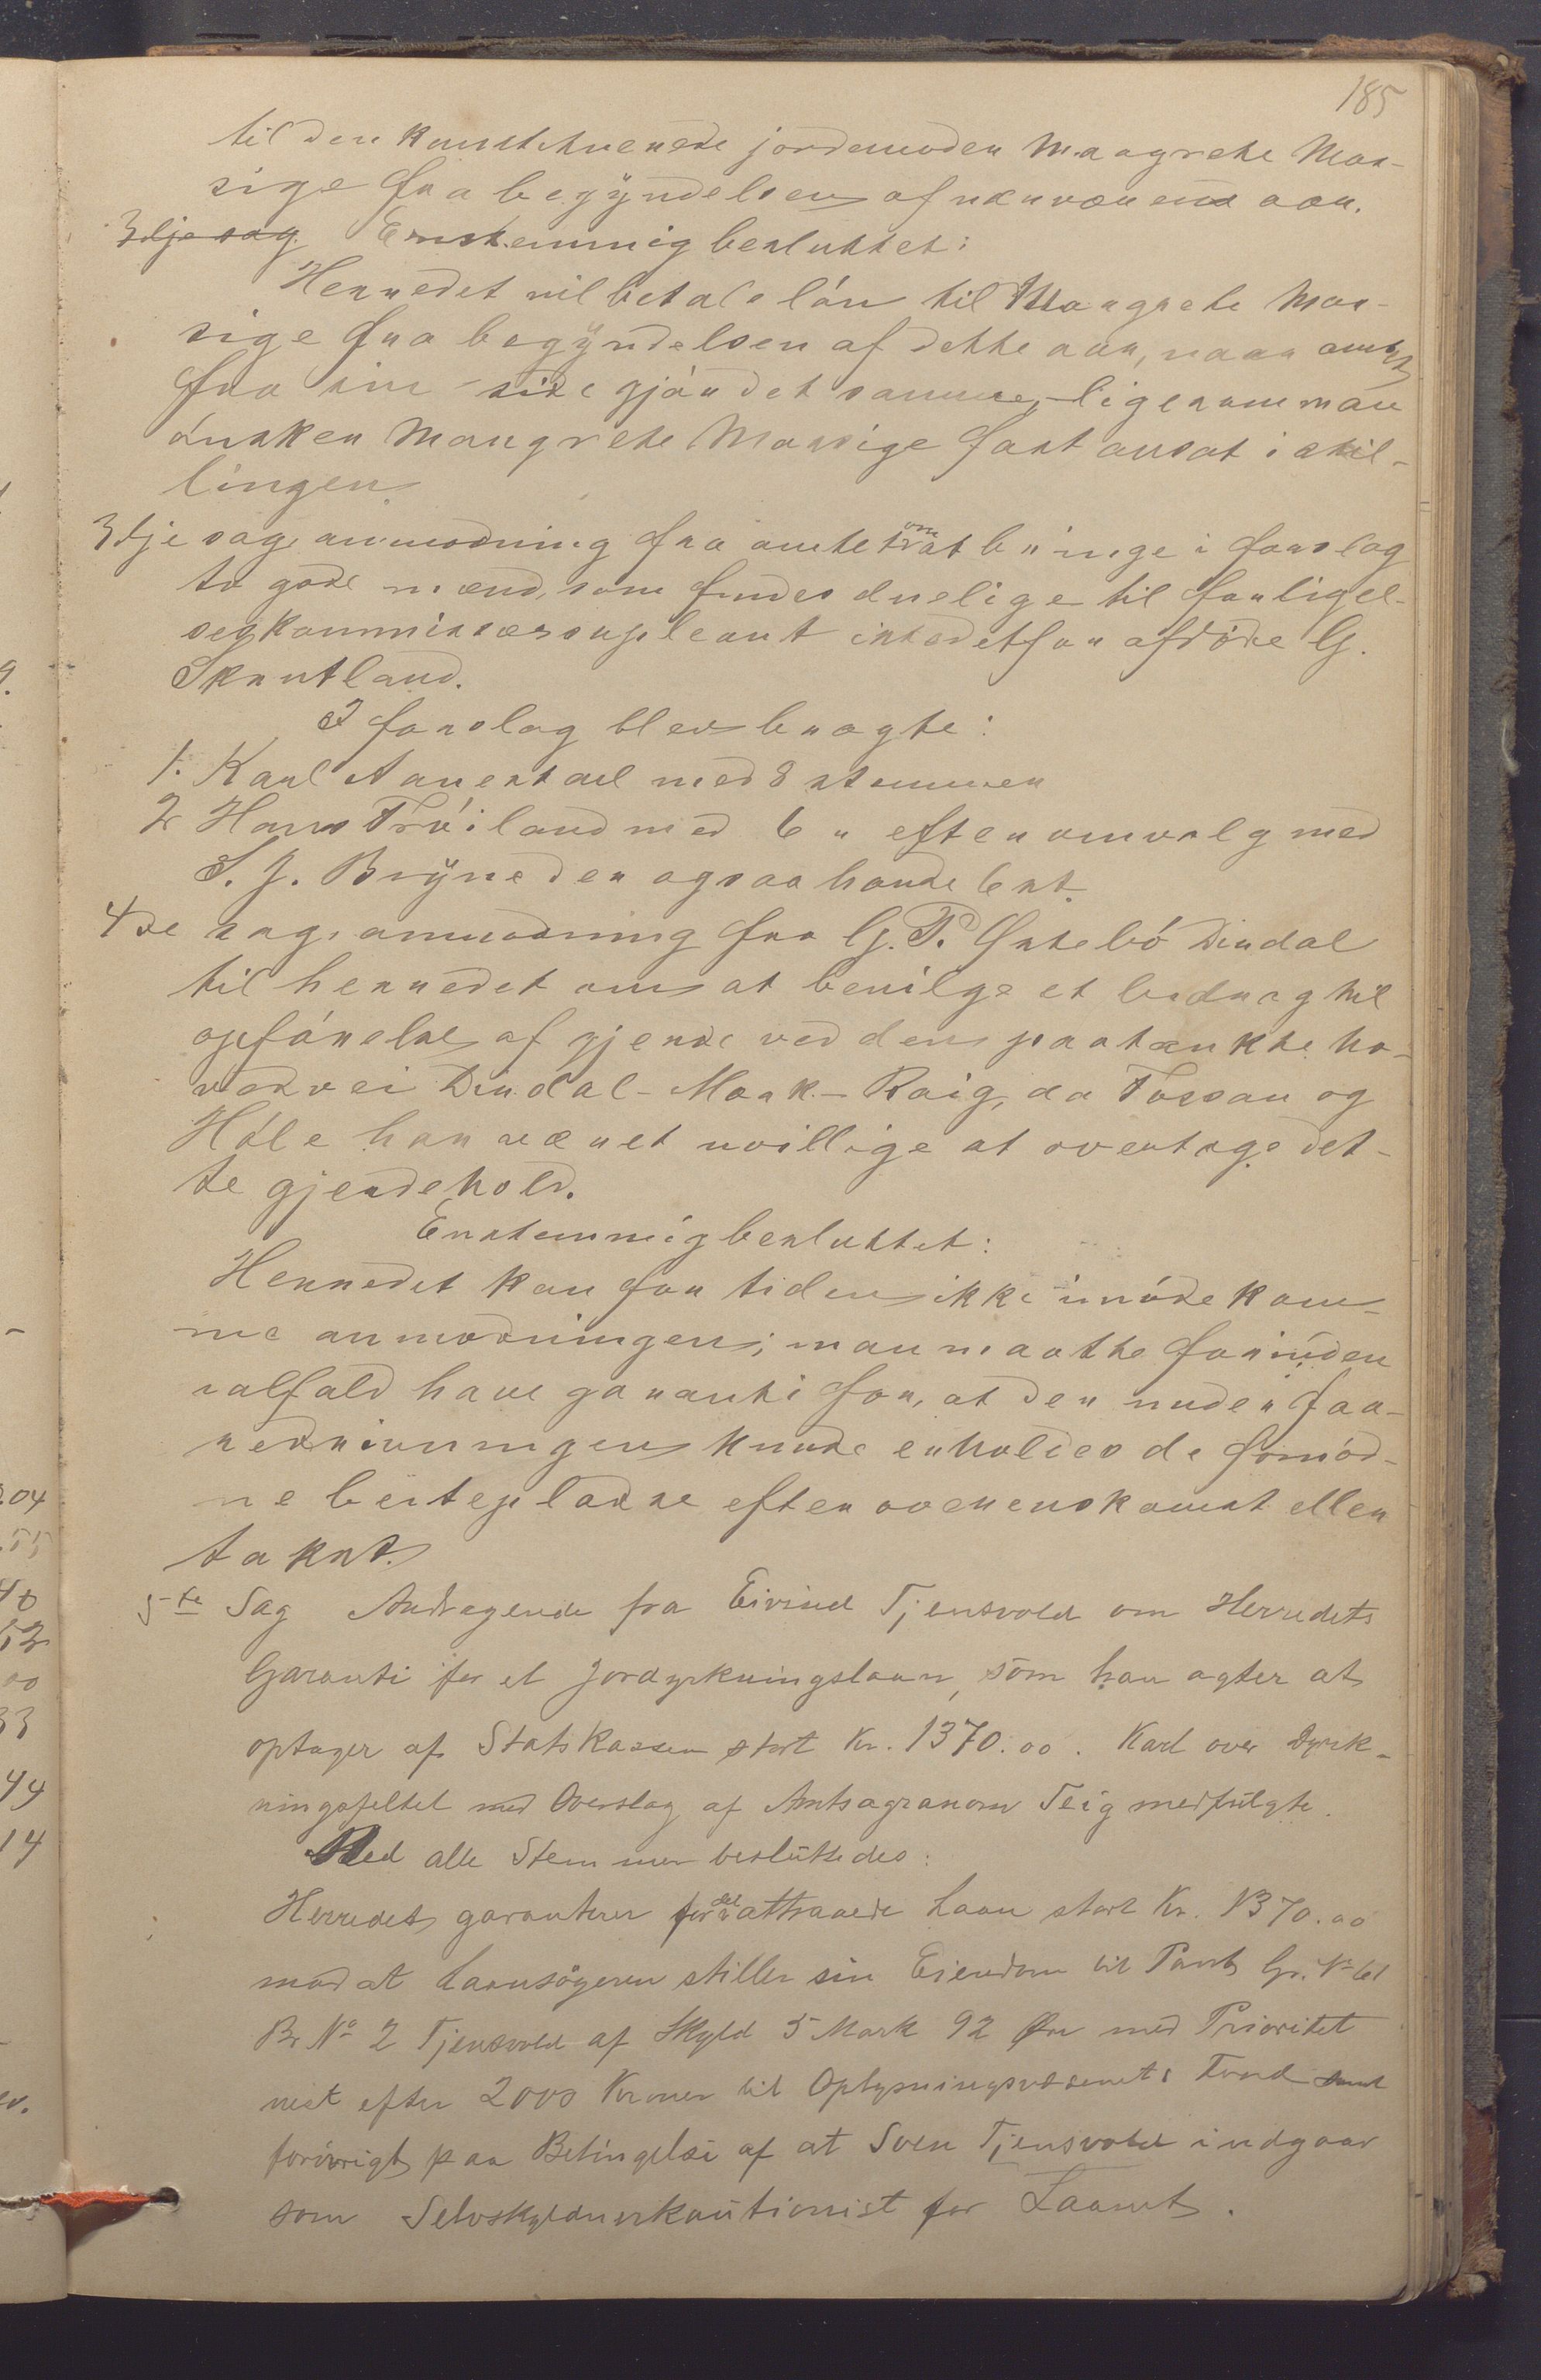 185
til den kunstterende jordemoder Maagrete Mas-
sige fra begyndelsen af nærværende aar.
3dje sag. Enstemmig besluttet:
Herredet vil betale lön til Maagrete Mas-
sige fra begyndelsen af dette aar, naar amtet
fra sin side gjör det samme, ligesom man
önsker Maagrete Massige fast ansat i stil-
lingen
3dje sag. anmodning fra amtet om at bringe i forslag
to gode mænd, som findes duelige til forligel-
seskommissærsupleant istedetfor afdöde G.
Skrutland.
I forslag blev bragte:
1. Karl Aarestad med 8 stemmer
2 Hans Tröiland med 6 " efter omvalg med
S. J. Bryne der ogsaa havde 6 st.
4de sag. anmodning fra G. T. Östebö Dirdal
til herredet om at bevilge et bidrag til
opförelse af gjerde ved den paatænkte ho-
vedvei Dirdal - Mark - Raig, da Tossan og
Höle har været uvillige at overtage det-
te gjerdehold.
Enstemmig besluttet:
Herredet kan for tiden ikke imödekom-
me anmodningen; man maatte forinden
ialfald have garanti for, at den under faa-
redriningen kunde erholdes de fornöd-
ne beitepladse efter overenskomst eller
takst.
5-te Sag Andragende fra Eivind Tjensvold om Herredets
Garanti for et Jorddyrkningslaan, som han agter at
optager af Statskassen stort Kr. 1370.00. Kart over Dyrk-
ningsfeltet med Overslag af Amtsagronom Teig medfulgte.
Med alle Stemmer besluttedes:
Herredet garanterer for det attraaede Laan stort Kr. 1370.00
mod at Laansögeren stiller sin Eiendom til Pant Gr. No 61
Br No 2 Tjensvold af Skyld 5 Mark 92 Øre med Prioritet
nest efter 2000 Kroner til Oplysningsvæsenets Fond samt
forövrigt paa Betingelse af at Sven Tjensvold indgaar
som Selvskyldnerkautionist for Laanet.